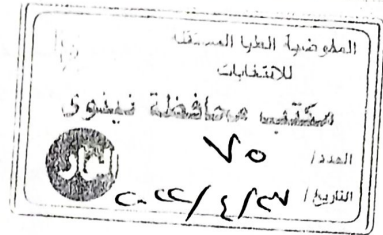 المفوضية العليا المستقلة
للانتخابات
مكتب محافظة نينوى
العدد / ٧٥
التاريخ /